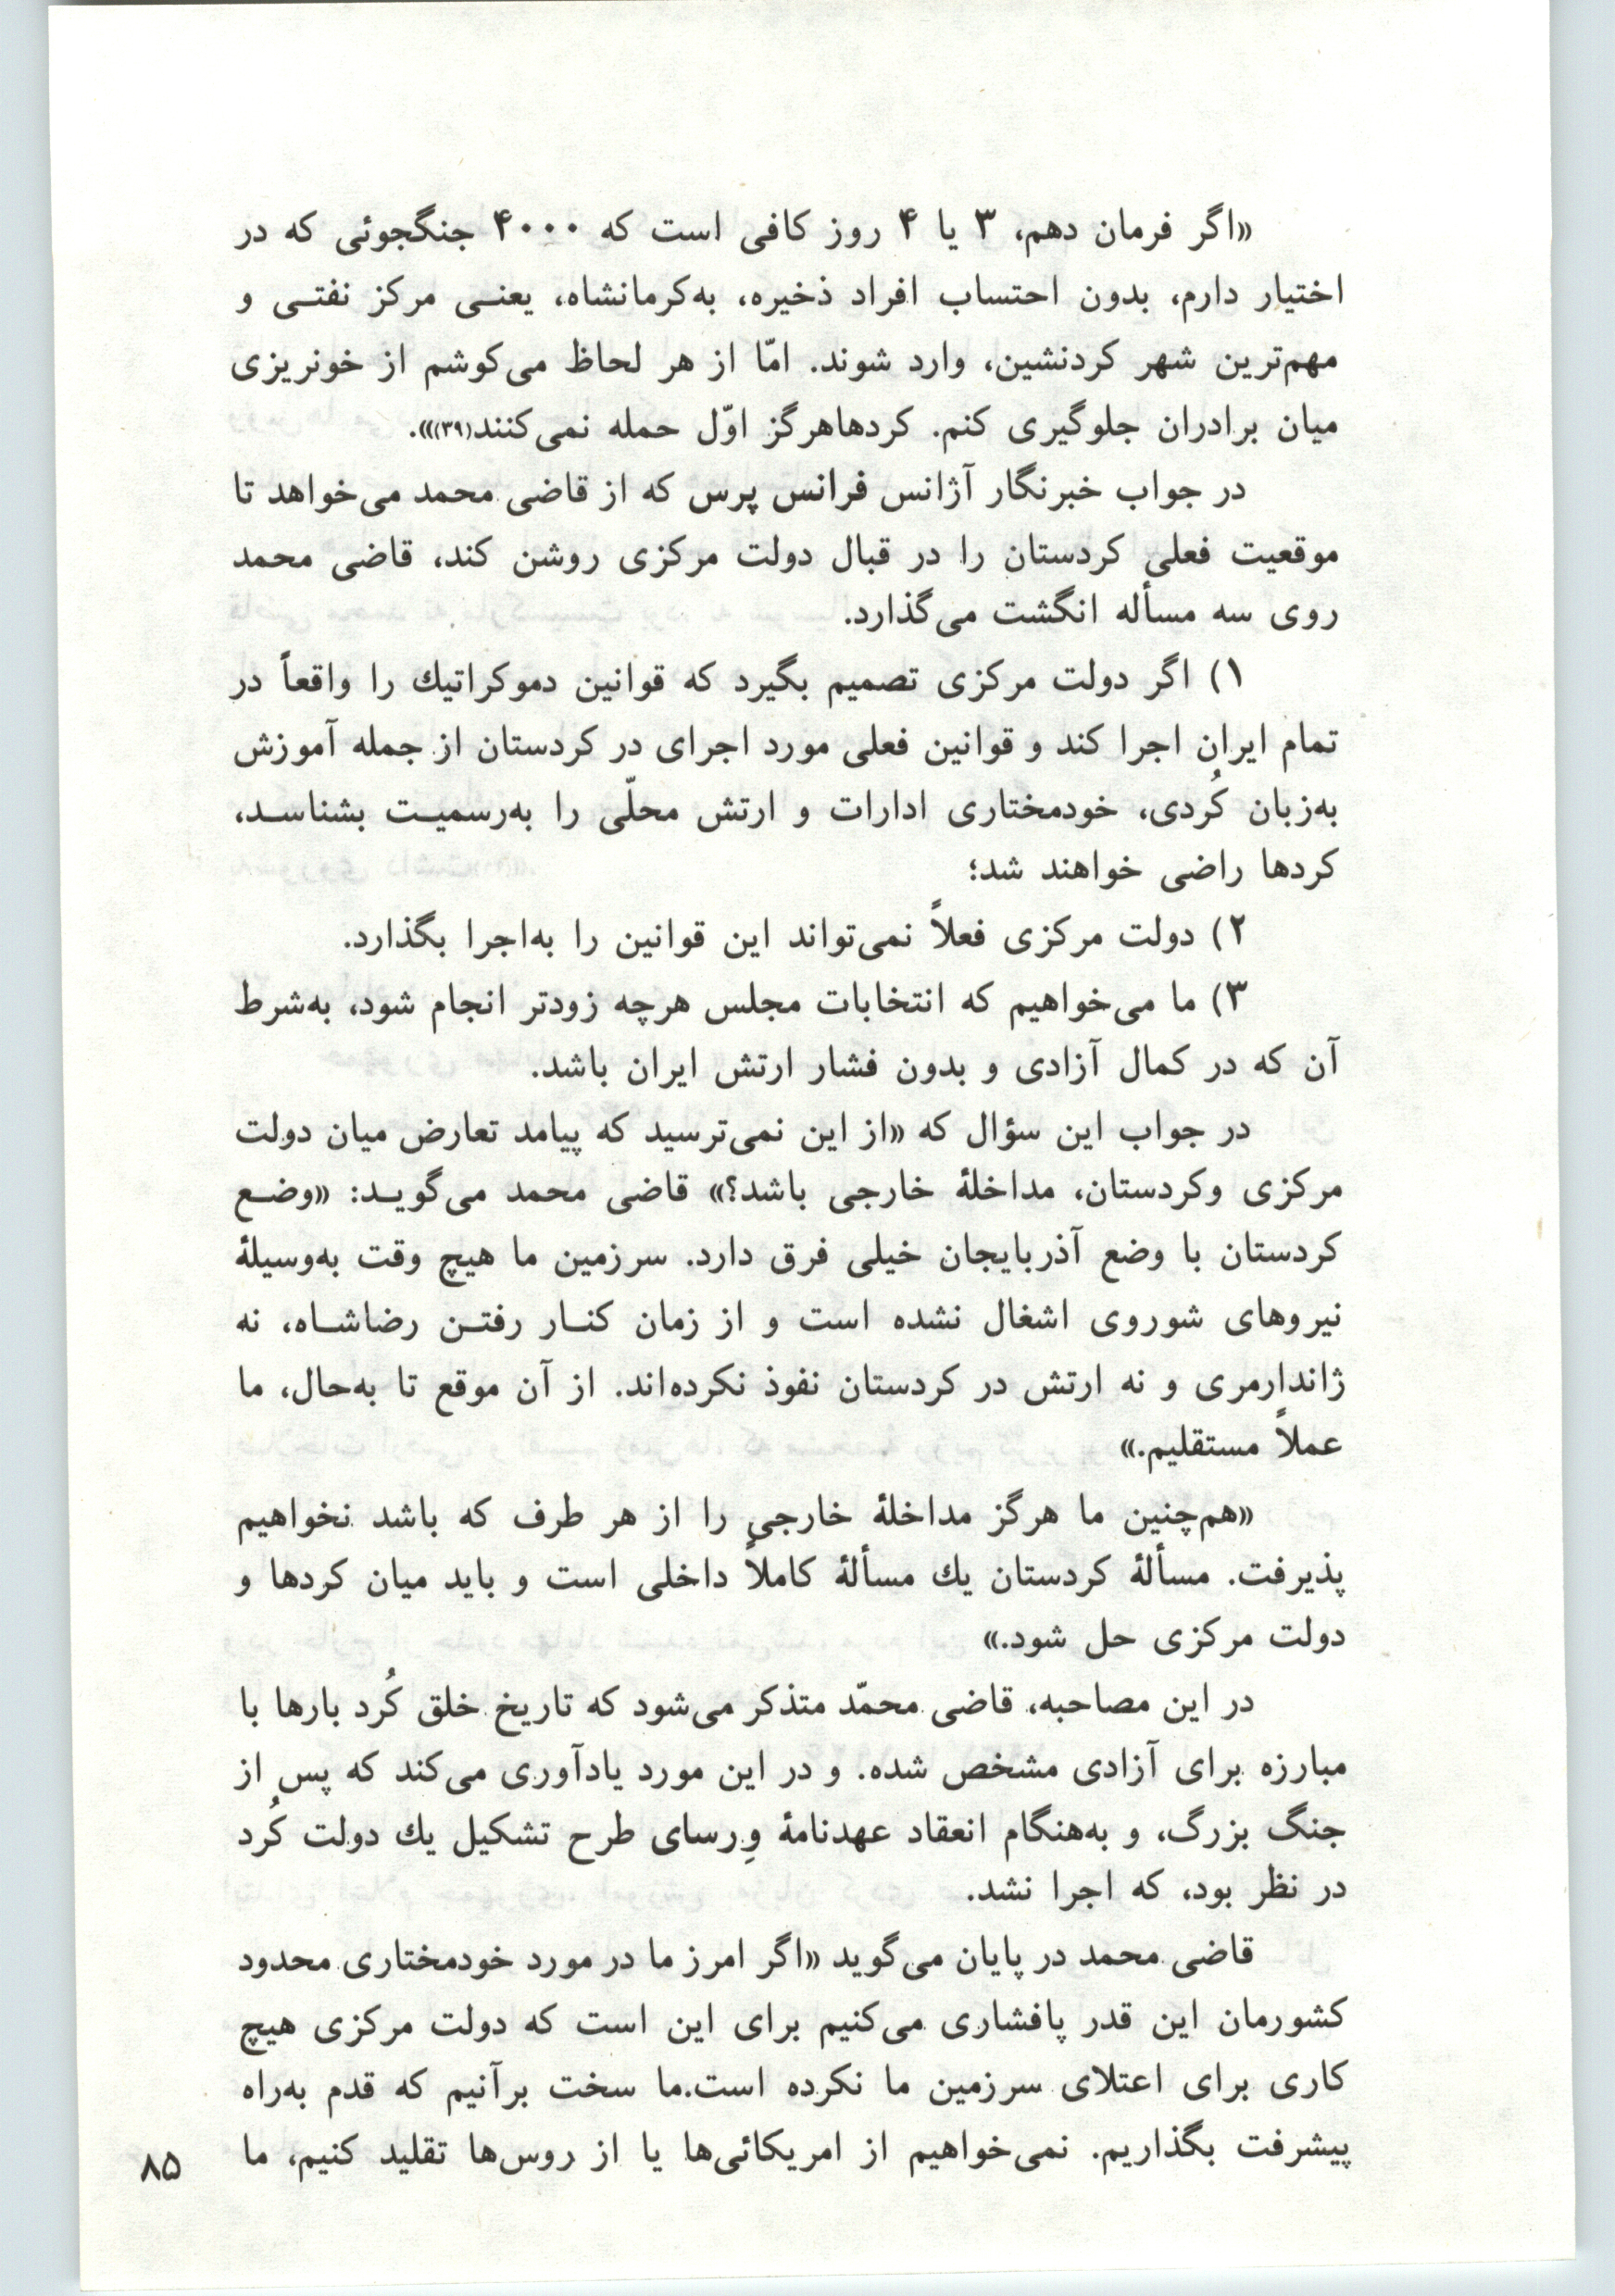 «اگر فرمان دهم، ۳ یا ۴ روز کافی است که ۴۰۰۰ جنگجوئی که در
اختیار دارم، بدون احتساب افراد ذخیره، به‌کرمانشاه، یعنـی مرکز نفتـی و
مهم‌ترین شهر کردنشین، وارد شوند. امّا از هر لحاظ می‌کوشم از خونریزی
میان برادران جلوگیری کنم. کردهاهرگز اوّل حمله نمی‌کنند(۳۹)».
در جواب خبرنگار آژانس فرانس پرس که از قاضی محمد می‌خواهد تا
موقعیت فعلی کردستان را در قبال دولت مرکزی روشن کند، قاضی محمد
روی سه مسأله انگشت می‌گذارد.
۱) اگر دولت مرکزی تصمیم بگیرد که قوانین دموکراتیك را واقعاً در
تمام ایران اجرا کند و قوانین فعلی مورد اجرای در کردستان از جمله آموزش
به‌زبان کُردی، خودمختاری ادارات و ارتش محلّی را به‌رسمیـت بشناسـد،
کردها راضی خواهند شد؛
۲) دولت مرکزی فعلاً نمی‌تواند این قوانین را به‌اجرا بگذارد.
۳) ما می‌خواهیم که انتخابات مجلس هرچه زودتر انجام شود، به‌شرط
آن که در کمال آزادی و بدون فشار ارتش ایران باشد.
در جواب این سؤال که «از این نمی‌ترسید که پیامد تعارض میان دولت
مرکزی وکردستان، مداخلهٔ خارجی باشد؟» قاضی محمد می‌گویـد: «وضـع
کردستان با وضع آذربایجان خیلی فرق دارد. سرزمین ما هیچ وقت به‌وسیلهٔ
نیروهای شوروی اشغال نشده است و از زمان کنـار رفتـن رضاشـاه، نه
ژاندارمری و نه ارتش در کردستان نفوذ نکرده‌اند. از آن موقع تا به‌حال، ما
عملاً مستقلیم.»
«هم‌چنین ما هرگز مداخلهٔ خارجی را از هر طرف که باشد نخواهیم
پذیرفت. مسألهٔ کردستان یك مسألهٔ کاملاً داخلی است و باید میان کردها و
دولت مرکزی حل شود.»
در این مصاحبه، قاضی محمّد متذکر می‌شود که تاریخ خلق کُرد بارها با
مبارزه برای آزادی مشخص شده. و در این مورد یادآوری می‌کند که پس از
جنگ بزرگ، و به‌هنگام انعقاد عهدنامهٔ وِرسای طرح تشکیل یك دولت کُرد
در نظر بود، که اجرا نشد.
قاضی محمد در پایان می‌گوید «اگر امرز ما در مورد خودمختاری محدود
کشورمان این قدر پافشاری می‌کنیم برای این است که دولت مرکزی هیچ
کاری برای اعتلای سرزمین ما نکرده است.ما سخت برآنیم که قدم به‌راه
پیشرفت بگذاریم. نمی‌خواهیم از امریکائی‌ها یا از روس‌ها تقلید کنیم، ما
۸۵